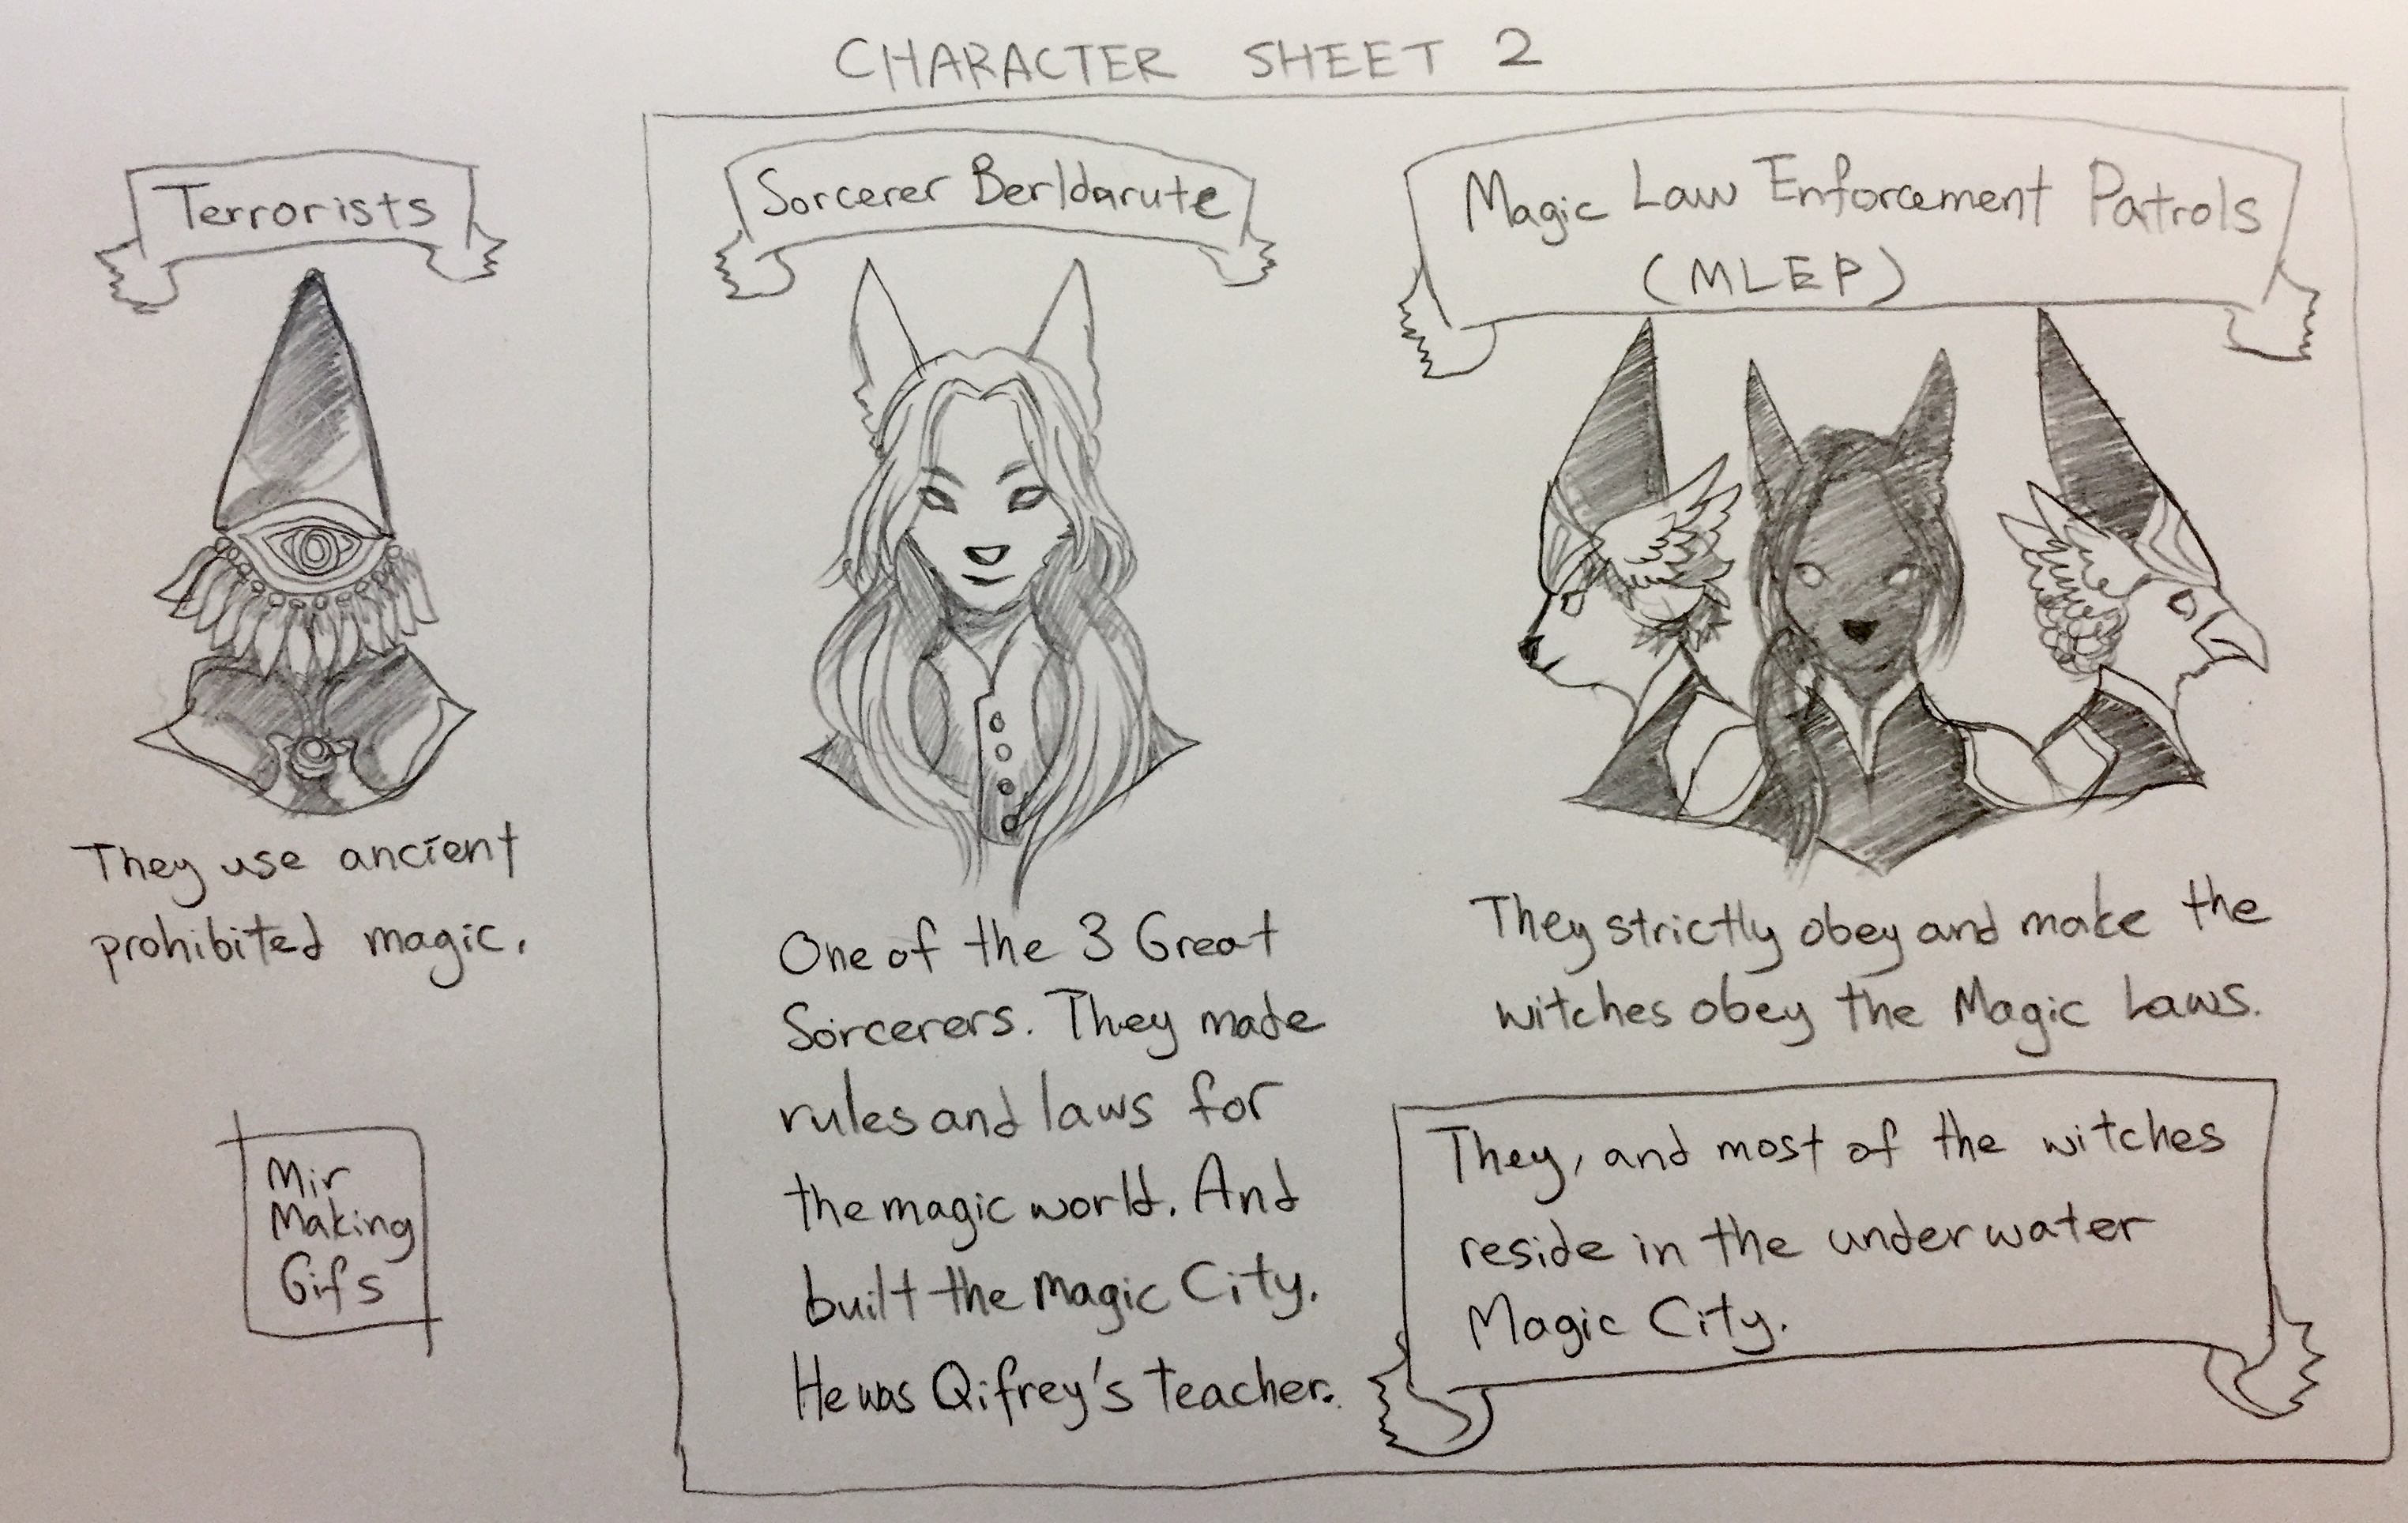 CHARACTER SHEET 2
Terrorists
They use ancient
prohibited magic.
Mir
Making
Gifs
Sorcerer Berldarute
One of the 3 Great
Sorcerers. They made
rules and laws for
the magic world. And
built the Magic City.
He was Qifrey's teacher.
Magic Law Enforcement Patrols
(MLEP)
They strictly obey and make the
witches obey the Magic Laws.
They, and most of the witches
reside in the underwater
Magic City.